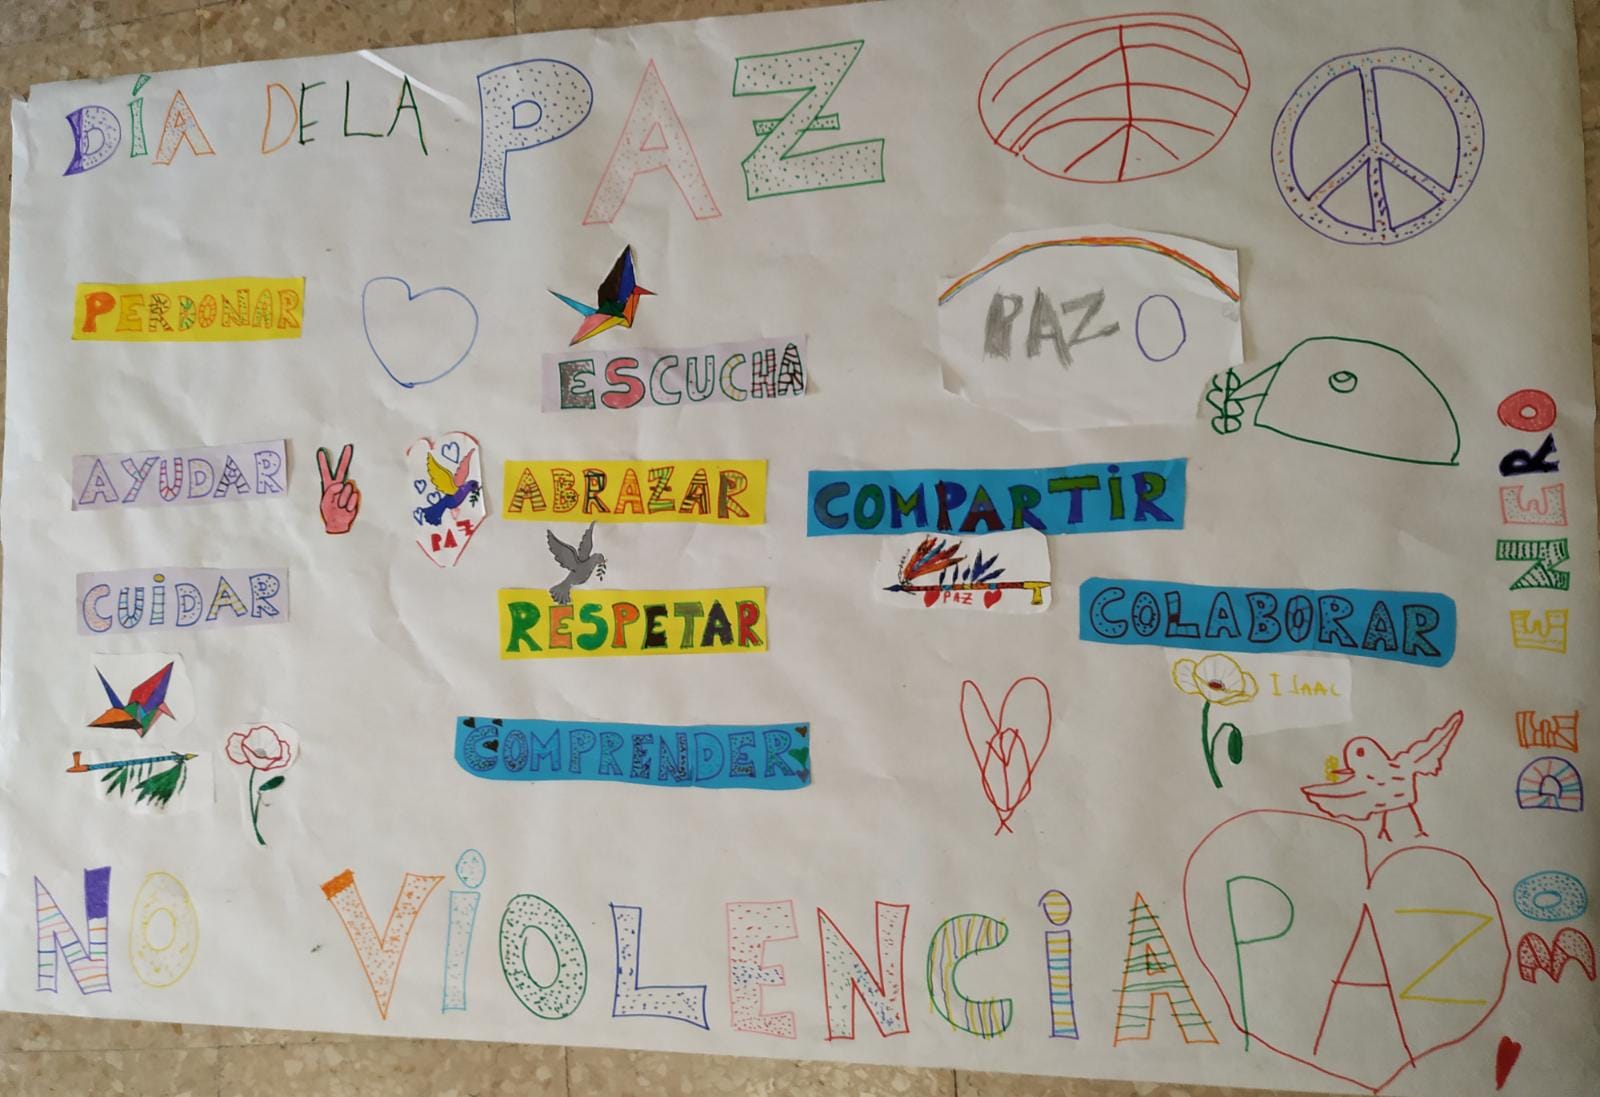 DÍA DE LA PAZ
PAZ
PERDONAR
ESCUCHA
AYUDAR
PAZ
ABRAZAR
COMPARTIR
CUIDAR
RESPETAR
PAZ
COLABORAR
ISAAC
COMPRENDER
NO VIOLENCIA
PAZ
30 DE ENERO